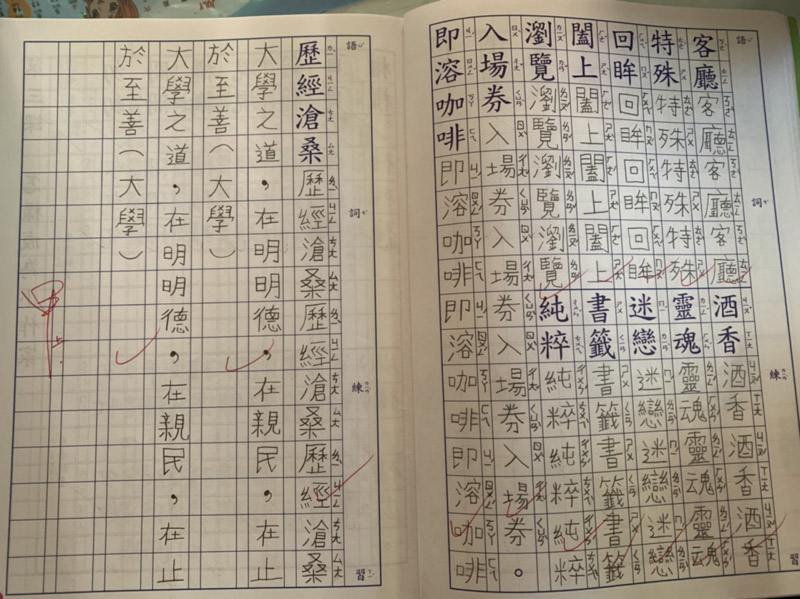 語詞練習
客廳客廳客廳客廳酒香酒香酒香酒香
特殊特殊特殊特殊靈魂靈魂靈魂靈魂
回眸回眸回眸回眸迷戀迷戀迷戀迷戀
闔上闔上闔上闔上書籤書籤書籤書籤
瀏覽瀏覽瀏覽瀏覽純粹純粹純粹純粹
入場券入場券入場券入場券入場券。
即溶咖啡即溶咖啡即溶咖啡即溶咖啡
語詞練習
歷經滄桑歷經滄桑歷經滄桑歷經滄桑
大學之道，在明明德，在親民，在止
於至善（大學）
大學之道，在明明德，在親民，在止
於至善（大學）
甲上